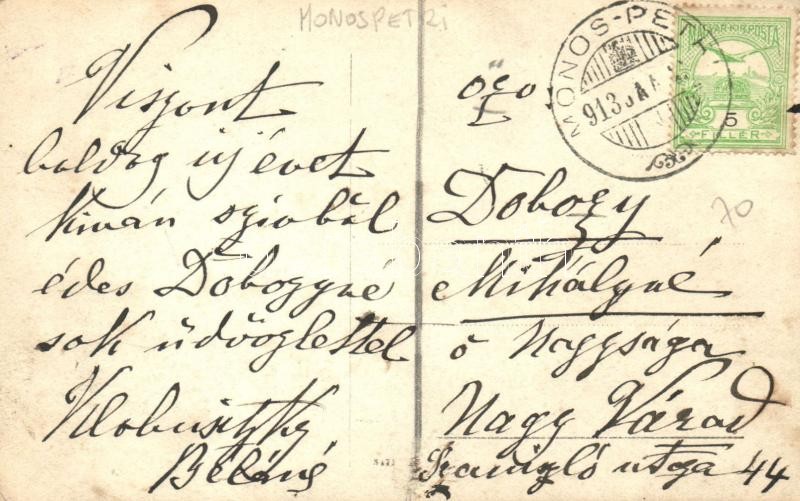 MONOSPETRI
Viszont
boldog új évet
kíván szívből
édes Dobozyné
sok üdvözlettel
Klobusitzky
Béláné
MONOS-PETRI
913 JAN
MAGYAR KIR. POSTA
5
FILLÉR
70
Dobozy
Mihályné
ő Nagysága
Nagy Várad
Szaniszló utza 44